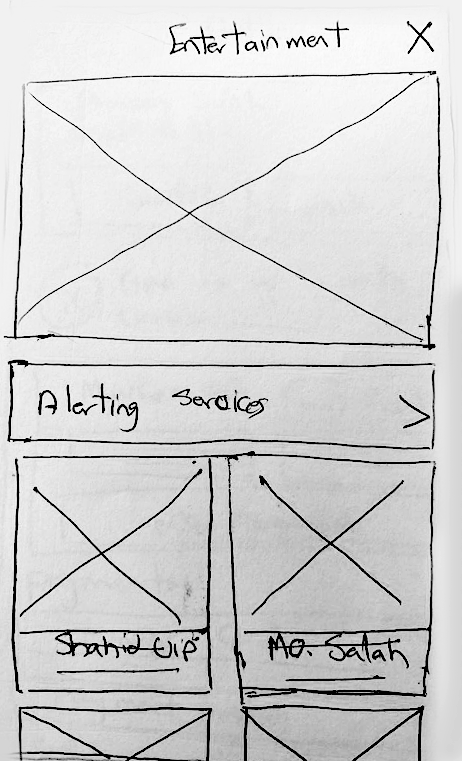 Entertainment X
Alerting Services >
Shahid Vip
Mo. Salah